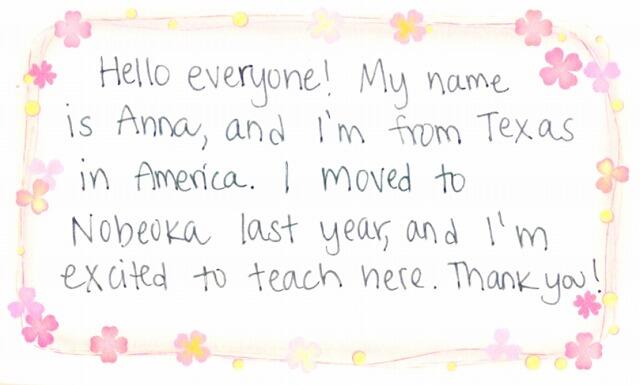 Hello everyone! My name
is Anna, and I'm from Texas
in America. I moved to
Nobeoka last year, and I'm
excited to teach here. Thank you!